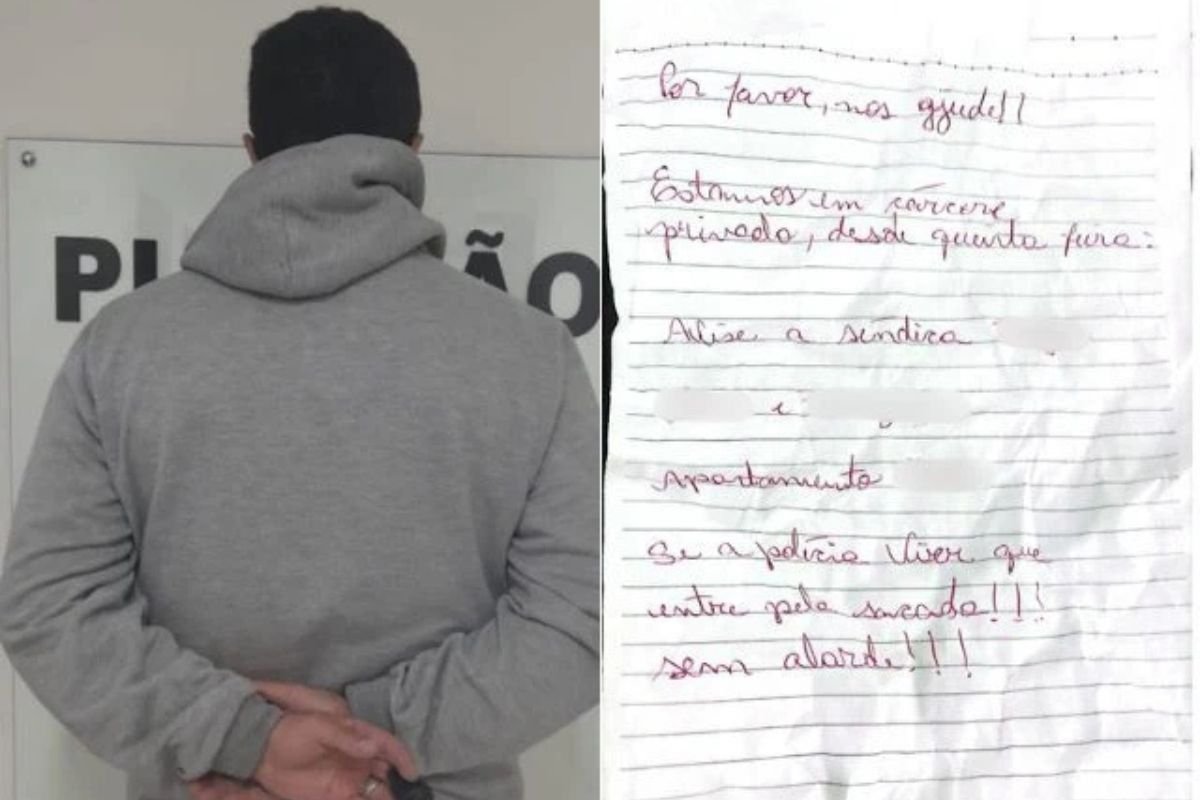 PL ÃO
Por favor, nos ajude!!
Estamos em cárcere
privado, desde quarta feira:
Avise a síndica
e
apartamento
Se a polícia vier que
entre pela sacada!!!
sem alarde!!!